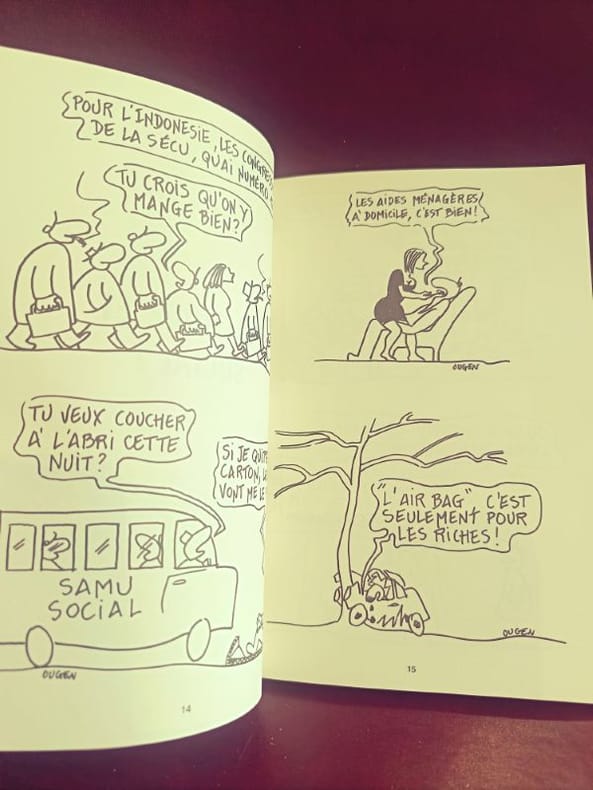 POUR L'INDONESIE, LES
DE LA SÉCU, QUAI
TU CROIS QU'ON Y
MANGE BIEN?
TU VEUX COUCHER
À L'ABRI CETTE
NUIT?
SI JE
CARTON,
VONT ME
SAMU
SOCIAL
OUGEN
14
LES AIDES MÉNAGÈRES
À DOMICILE, C'EST BIEN!
OUGEN
"L'AIR BAG" C'EST
SEULEMENT POUR
LES RICHES!
OUGEN
15